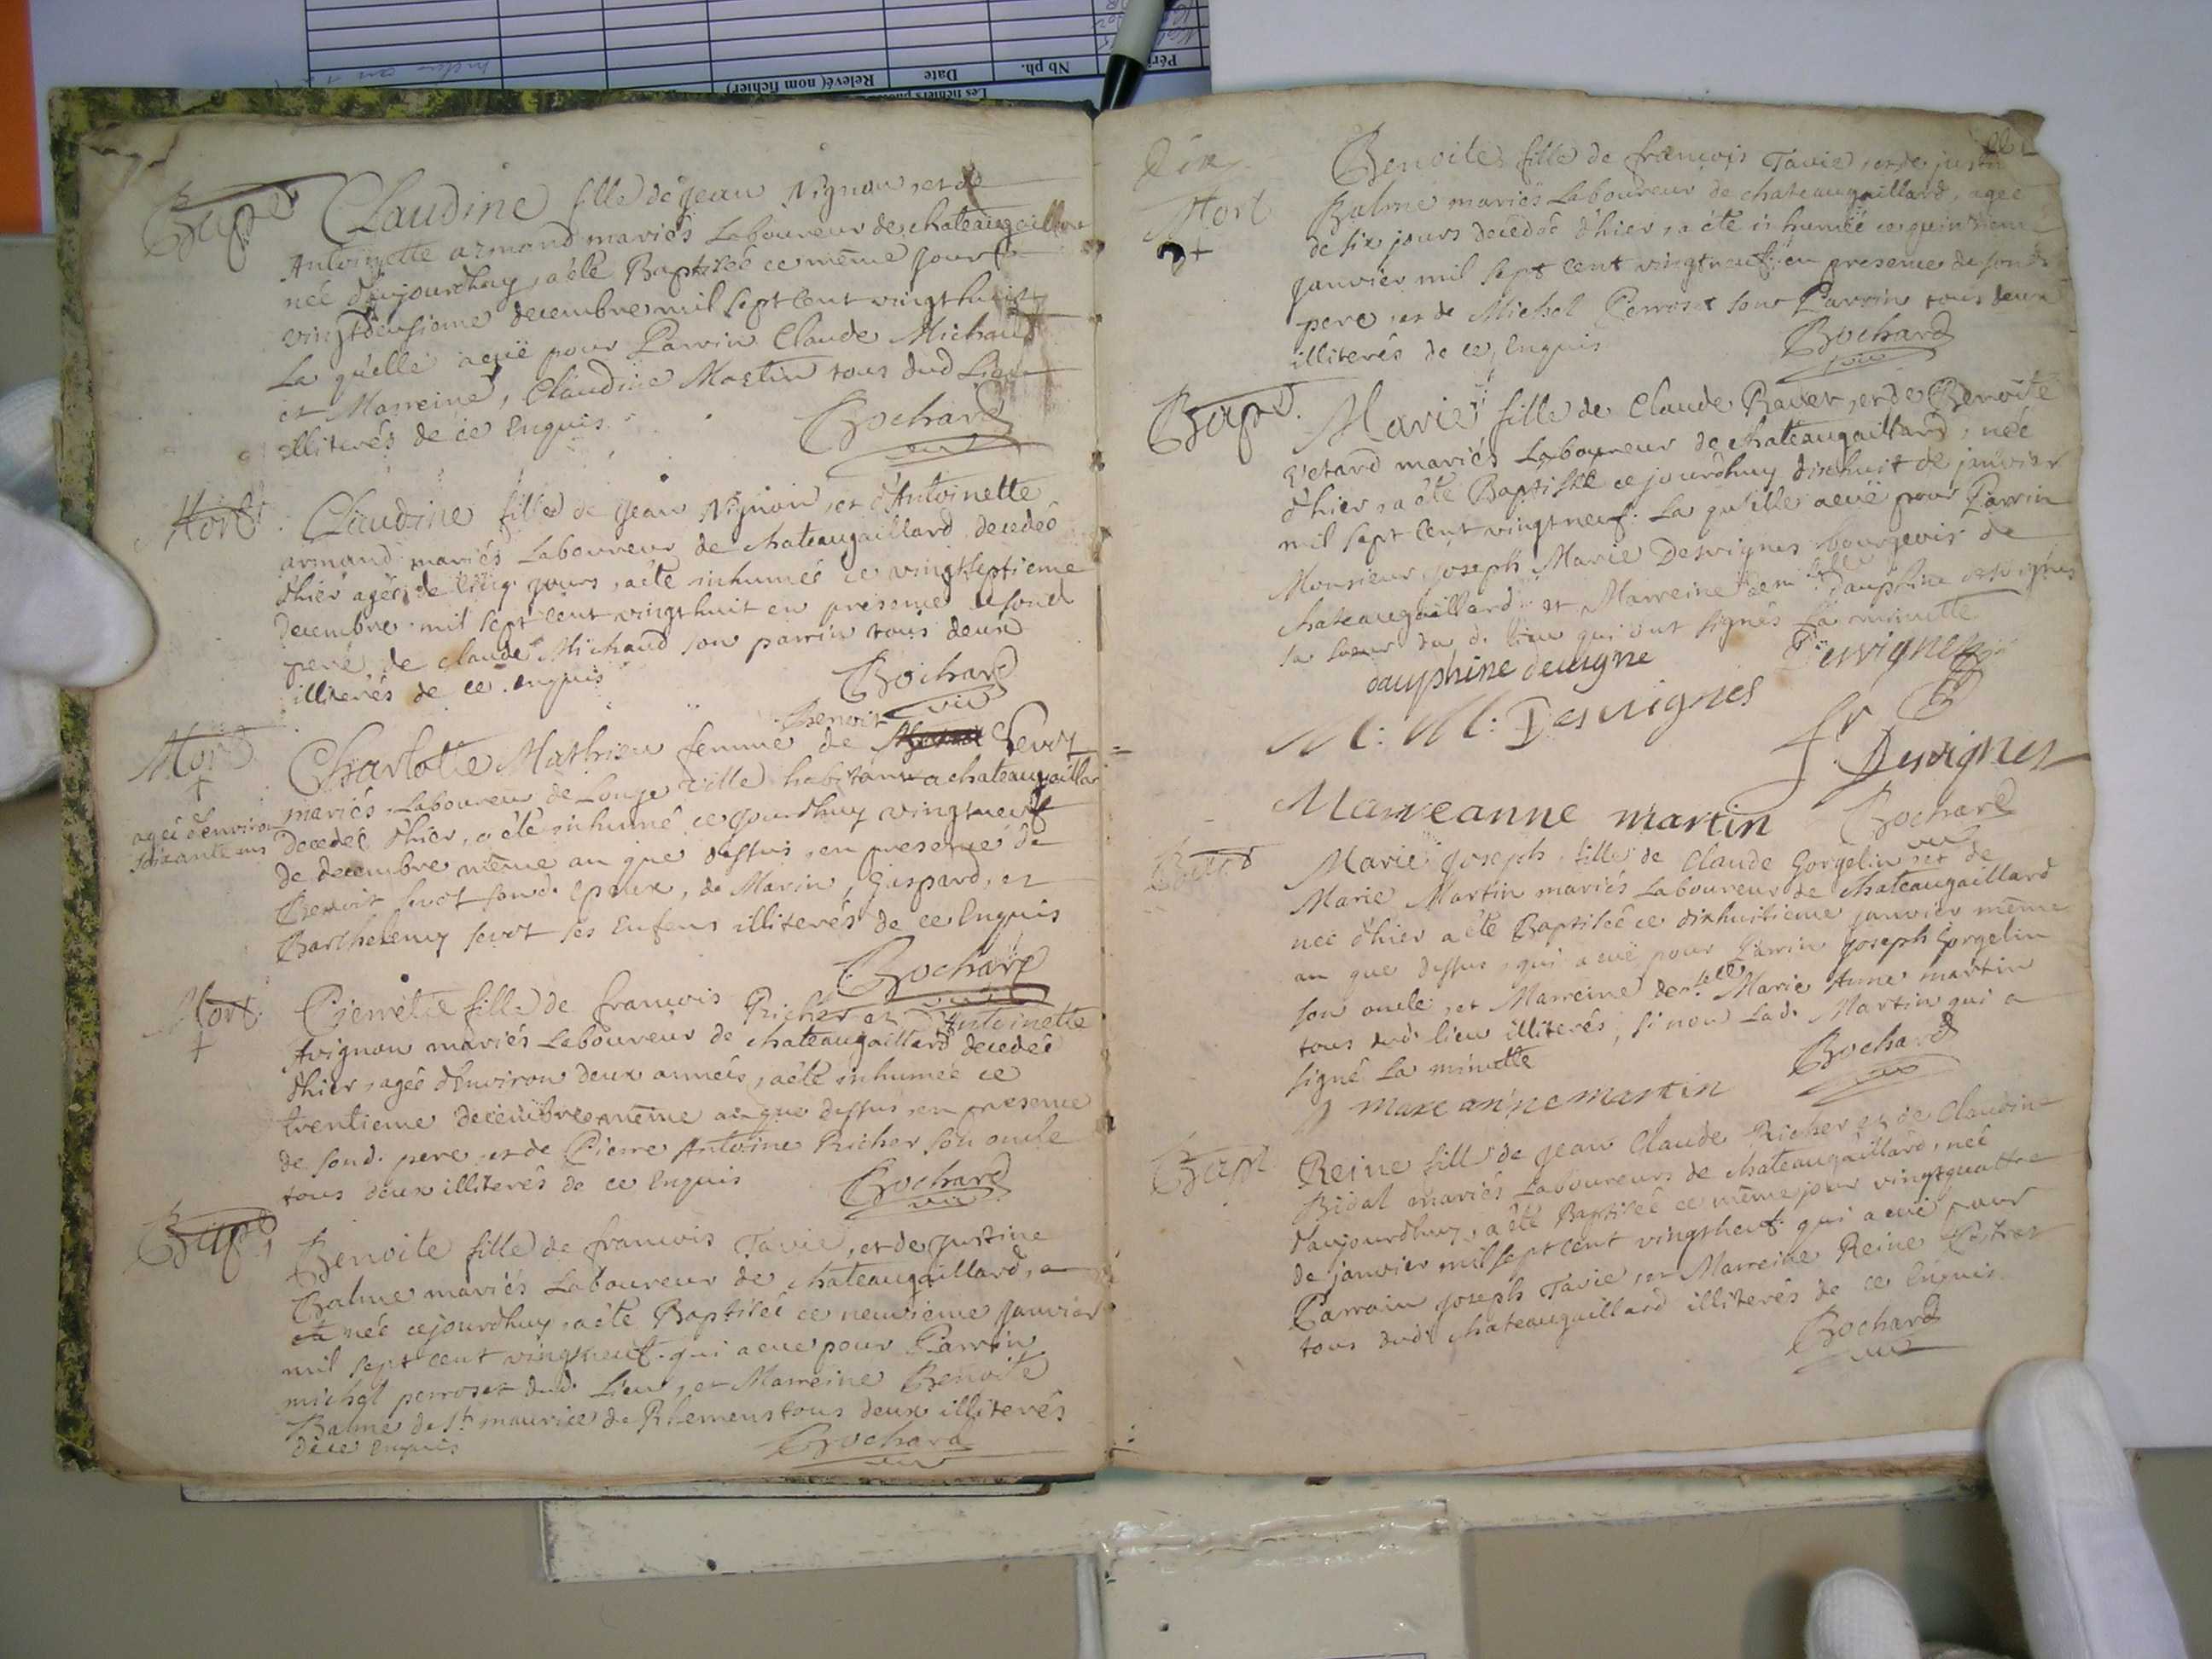 Bapt
Claudine fille de Jean Vignon, et de
Antoinette armand mariés Laboureur de chateaugaillard
née d'aujourdhuy, a été Baptisée ce même jour
vingtdeusieme decembre mil sept cent vingt huit
La quelle a euë pour Parrin Claude Michaud
et Marreine, Claudine Martin tous dud Lieu
illiterés de ce Enquis
Bochard
Mort
Claudine fille de Jean Vignon, et d'Antoinette
armand mariés Laboureur de chateaugaillard decedée
d'hier agée de cinq jours, a été inhumée ce vingtseptieme
decembre mil sept cent vingt huit en presence de sond
pere de claude Michaud son parrin tous deux
illiterés de ce enquis
Bochard
Mort
agée d'environ
soixante ans
Benoit
Charlotte Mathieu femme de Sevot
mariés Laboureur de Longe ville habitant a chateaugaillar
Decedée d'hier, a été inhumé ce jourdhuy vingtneuf
de decembre même an que dessus, en presence de
Benoit sevot sond. Epoux, de Marin, Gaspard, et
Barthelemy sevot ses Enfens illiterés de ce Enquis
Bochard
Mort
Pierrette fille de francois Richer et d'Antoinette
Avignon mariés Laboureur de chateaugaillard decedée
d'hier, agée d'Environ deux années, a été inhumée ce
trentieme decembre même an que dessus en presence
de sond. pere, et de Pierre Antoine Richer son oncle
tous deux illiterés de ce Enquis
Bochard
Bapt
Benoite fille de francois Tavie, et de Justine
Balme mariés Laboureur de chateaugaillard, a
née cejourdhuy, a été Baptisée ce neuvieme Janvier
mil sept cent vingtneuf. qui a eue pour Parrin
michel perroset dud. Lieu, et Marreine Benoite
Balme de St. maurice de Rhemens tous deux illiterés
de ce Enquis
Bochard
Dix
Mort
Benoite fille de francois Tavie, et de justin
Balme mariés Laboureur de chateaugaillard, agée
de six jours decedée d'hier, a été inhumée ce quinzieme
janvier mil sept cent vingtneuf. en presence de sond.
pere, et de Michel Perroset son Parrin tous deux
illiterés de ce Enquis
Bochard
Bapt.
Marie fille de Claude Raver, et de Benoite
mariés Laboureur de chateaugaillard, née
d'hier, a été Baptisée ce jourdhuy dixhuit de janvier
mil sept cent vingtneuf. La qu'elle a euë pour Parrin
Monsieur Joseph Marie Desvignes bourgeois de
chateaugaillard et Marreine demlle dauphine desvignes
sa soeur du d. lieu qui ont signés la minutte
dauphine devigne
Desvignes
M: M: Desvignes
fr Desvignes
Marieanne martin
Bochard
Bapt
Marie Joseph fille de Claude Gorgelin, et de
Marie Martin mariés Laboureur de chateaugaillard
née d'hier a été Baptisée ce dixhuitieme janvier même
an que dessus, qui a euë pour Parrin Joseph Gorgelin
son oncle, et Marreine demlle Marie Anne martin
tous dud. lieu illiterés, sinon Lad. Martin qui a
signé La minutte
marie anne martin
Bochard
Bapt
Reine fille de Jean Claude Richer et de Claudine
Bidal mariés Laboureurs de chateaugaillard, née
d'aujourdhuy, a été Baptisée ce même jour vingtquattre
de janvier mil sept cent vingtneuf. qui a euë pour
Parrain Joseph Tavie, et Marreine Reine
tous dud. chateaugaillard illiterés de ce Enquis
Bochard
Relevé( nom fichier)
Date
Nb ph.